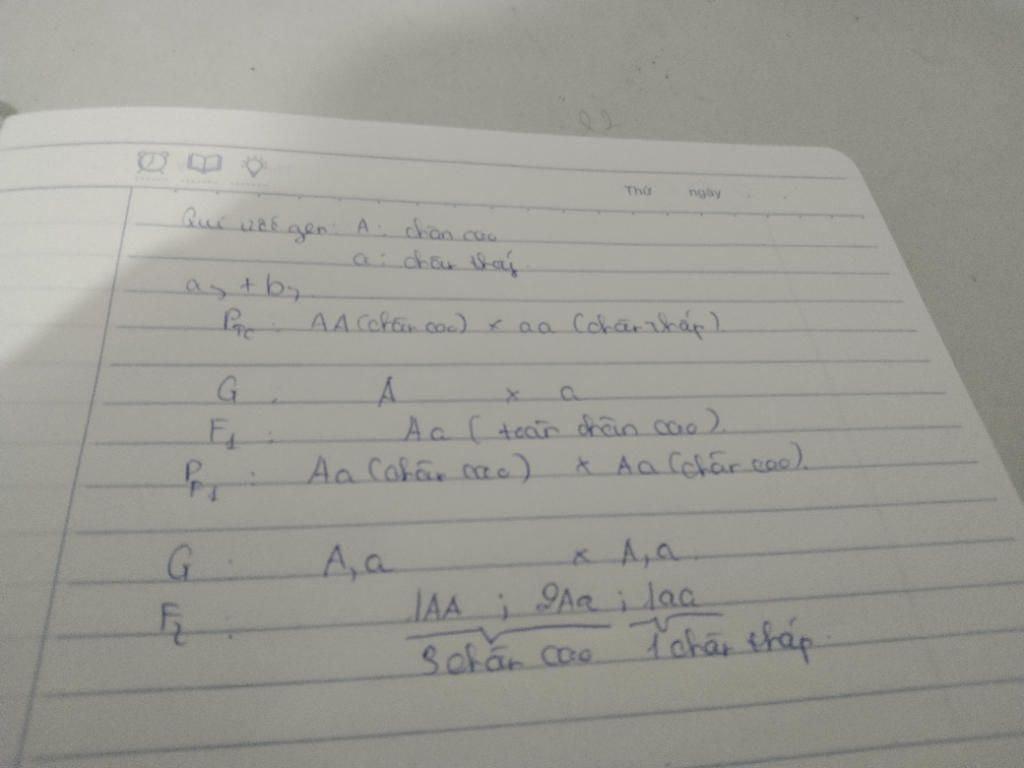 Thứ ngày
Qui ước gen: A: chân cao
a: chân thấp
a, + b,
P_TC: AA (chân cao) x aa (chân thấp)
G: A x a
F1: Aa (toàn chân cao)
P_F1: Aa (chân cao) x Aa (chân cao).
G: A, a x A, a.
F2: 1AA ; 2Aa ; 1aa
3 chân cao 1 chân thấp.